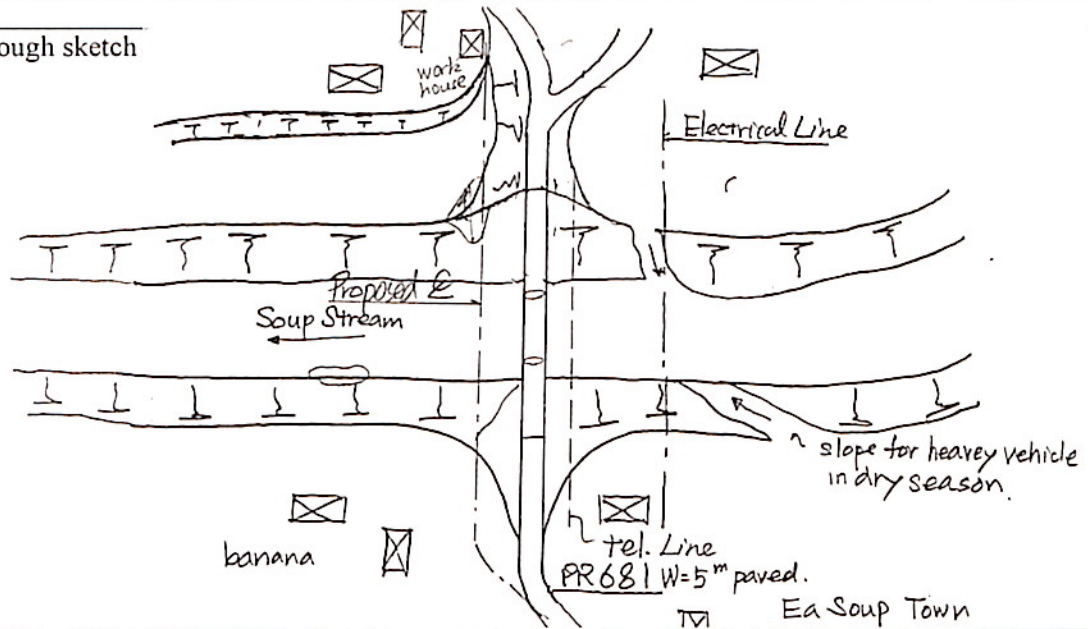 ough sketch
work
house
Electrical Line
Proposed ℄
Soup Stream
slope for heavey vehicle
in dry season.
banana
tel. Line
PR681 W=5m paved.
Ea Soup Town